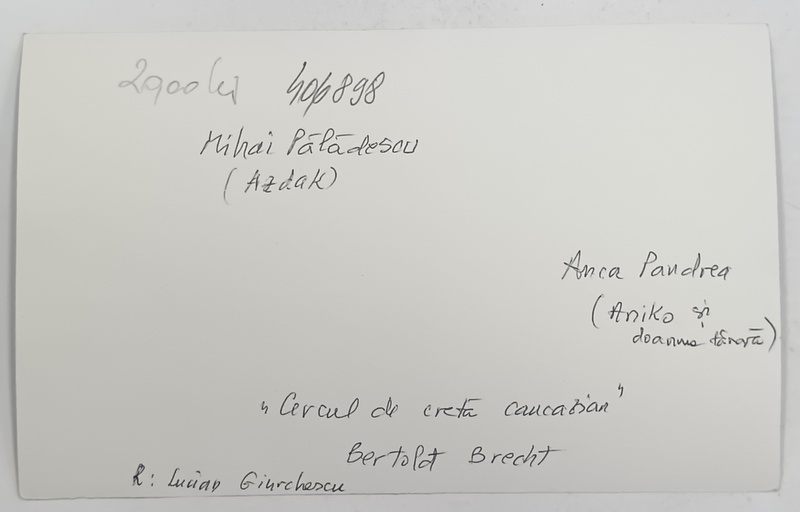 2900 lei 406898
Mihai Pălădescu
(Azdak)
Anca Pandrea
(Aniko și
doamna tânără)
"Cercul de cretă caucazian"
Bertolt Brecht
R: Lucian Giurchescu